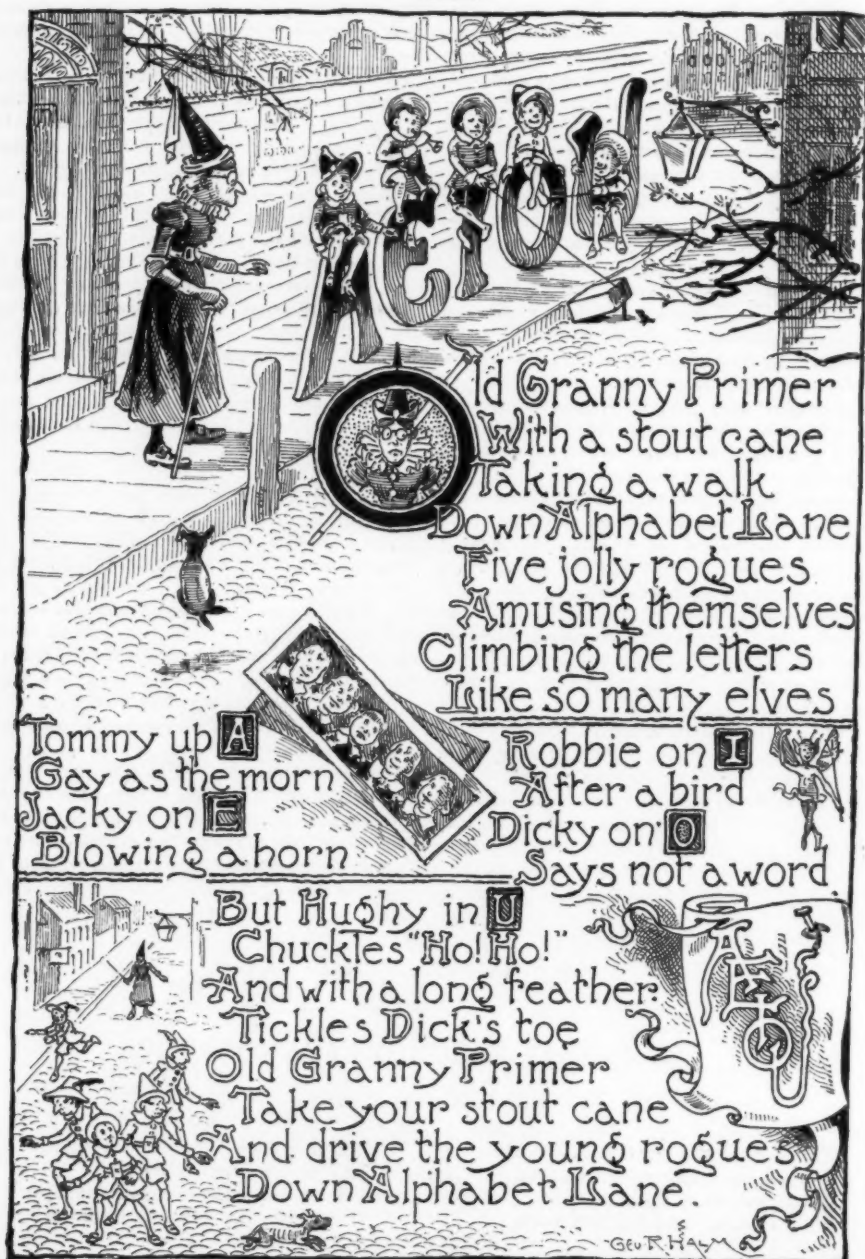 A E I O U
Old Granny Primer
With a stout cane
Taking a walk
Down Alphabet Lane
Five jolly rogues
Amusing themselves
Climbing the letters
Like so many elves
Tommy up A
Gay as the morn
Jacky on E
Blowing a horn
Robbie on I
After a bird
Dicky on O
Says not a word.
But Hughy in U
Chuckles "Ho! Ho!"
And with a long feather
Tickles Dick's toe
Old Granny Primer
Take your stout cane
And drive the young rogues
Down Alphabet Lane.
AEIOU
GEO R HALM